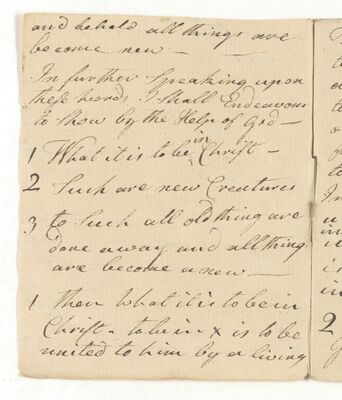 and behold all things are
become new —
In further Speaking upon
these words I Shall Endeavour
to Show by the Help of God —
1 What it is to be in Christ —
2 Such are new Creatures
3 to Such all old thing are
done away and all thing
are become a new —
1 then What it is to be in
Christ - to be in x is to be
united to him by a living
2